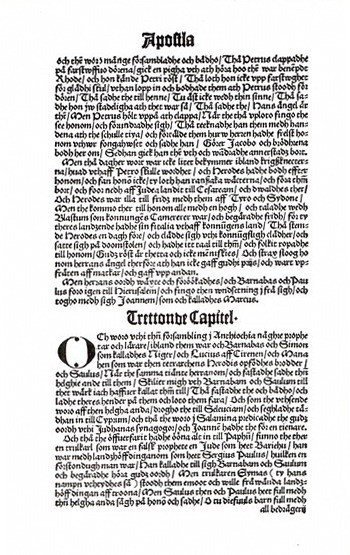 Apostla
och thē woro mānge försambladhe och bādho / Thā Petrus clappadhe
pā farstwffwo dörena / gick en pigha vth ath höra hoo thē war benempd
Rhode / och hon kānde Petri röst / Thā loth hon icke vpp farstwghen
för glādhi skul / vthan lopp in och bodhade them ath Petrus stoodh för
dören / Thā sadhe the till henne / Tu āst icke wedh thin sinne / Thā sa-
dhe hon jw stadeligha ath thet war sā / Thā sadhe the / Hans āngel ār
thē / Men Petrus hölt vppā ath clappa / Nār the thā vploto fingo the
see honom / och foundradhe sigh / Thā teeknadhe han them medh han-
dena ath the skulle tyia / och förtālde them hurw herren hadhe ledst ho-
nom vth vr fongahwset / och sadhe han / Görer Jacobo och brödhrena
bodh her om / Sedhan gick han thē vth och wādradhe annerstadz boor.
Men thā dagher woor war icke liitet bekymmer ibland krigsknecter-
na / huad vthaff Petro skulle wordhet / och Herodes hadhe bodh effter
honom / och fan honō icke / ty loth han ranszaka wāctarena / och foor thēn
bor / och foor nedh aff Judea landet till Cesaream / och dwaldhes ther /
Och Herodes war illa till fridz medh them aff Tyro och Sydone /
Men the komo ther till honom alle medh en hogh / och talādhe wedh
Blastum som konungēs Camererer war / och begāradhe fridh / för ty
theres landzende hadhe sin fitalia vthaff konnūgens land / Thā stem-
de Herodes en dagh före / och clādde sigh vthi konnūgsligh clādher / och
satte sigh pā doomstolen / och hadhe itt taal till thēm / och folkit ropadhe
till honom / Gudz röst ār thetta och icke menniskes / Och stray sloog ho
nom herrans āngel ther för / ath han icke gaff gudhi prijs / och wart vp-
frāten aff markar / och gaff vpp andan.
Men herrans oordh wāxte och förökadhes / och Barnabas och Pau
lus foro igen till Hierusalem / och fingo them verdseningh ifrā sigh / och
togho medh sigh Joannem / som och kalladhes Marcus.
Trettonde Capitel.
OCh woro vthi thēn församling j Antiochia nāghre prophe
tar och lārare / ibland them war och Barnabas och Simon
som kalladhes Niger / och Lucius aff Cirenen / och Mana
hen som war then tetrarchens Herodis opfödhes brodder /
och Saulus / Nār the samma tiānte herranom / och fastadhe sadhe thēn
helghie ande till them / Skilier migh vth Barnabam och Saulum till
thet wārk iach haffuer kallat thēm till / Thā fastadhe the och bādho / och
ladhe theres hender pā them och loto them fara / Och som the vthsende
woro aff then helgha anda / droghe the till Seleuciam / och seghladhe tā-
dhan in till Cyprum / och thā the woro j Salamina predicadhe the gudz
oordh vthi Judhanas synagogor / och Joannē hadhe the för en tienare.
Och thā the öffuerfarit hadhe öōna alt in till Paphū / funno the ther
en trulkarl som war en falsk prophete en Jude som heet Bariehu / han
war medh landzhöffdingan som heet Sergius Paulus / huilken en
forstondugh man war / Han kallade till sigh Barnabam och Saulum
och begāradhe höra gudz oordh / Men trulkaren Elymas ( ty hans
nampn vthtydhes sā ) stoodh them emoot / och wille frā wāndā landz-
höffdingan aff troona / Men Saulus then och Paulus heet full medh
thn helgha anda sāgh pā honō och sadhe / O tu dieffuuls barn full medh
all bedrāgerij